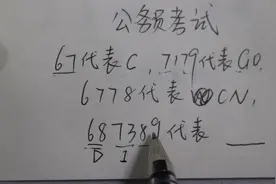 公务员考试
67代表C,7179代表GO,
6778代表CN,
687389代表
D I